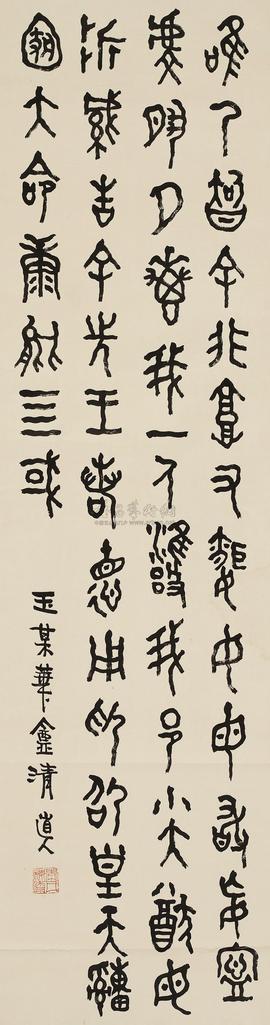 唯乃智余非庸又聞女毋敢妄寧
虔夙夕惠我一人雍我邦小大猷毋
折緘告余先王若德用卬卲皇天緟
恪大命康能四或
玉某華盦清道人